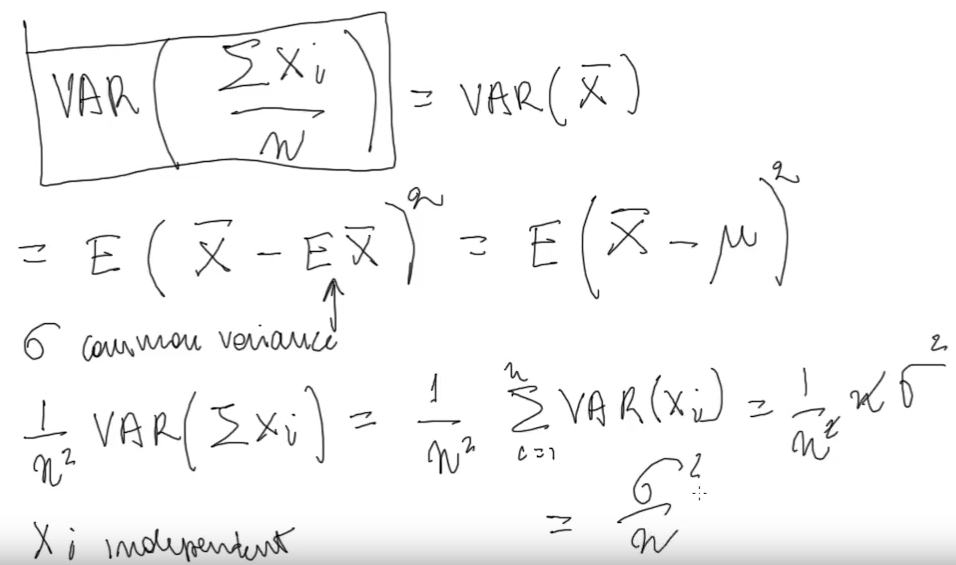 VAR(∑xᵢ/n) = VAR(x̄)
= E(x̄ - Ex̄)² = E(x̄ - μ)²
σ common variance
1/n² VAR(∑xᵢ) = 1/n² ∑ᵢ₌₁ⁿ VAR(xᵢ) = 1/n² n σ²
= σ²/n
xᵢ independent